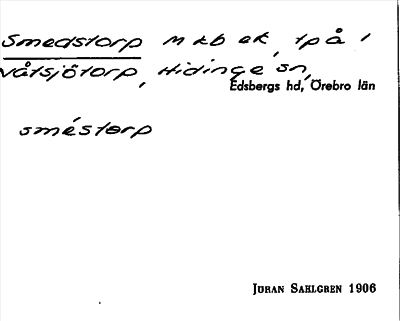 Smedstorp m kb ek, tp å 1
Våtsjötorp, Hidinge sn,
Edsbergs hd, Örebro län
sméstorp
Jöran Sahlgren 1906